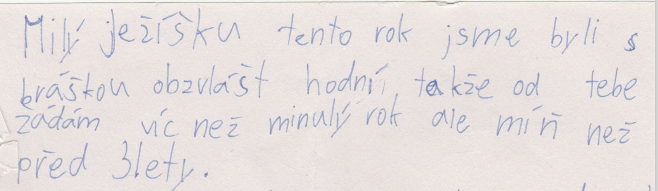 Milý ježíšku tento rok jsme byli s
bráškou obzvlášt hodní, takže od tebe
žádám víc než minulý rok ale míň než
před 3lety.